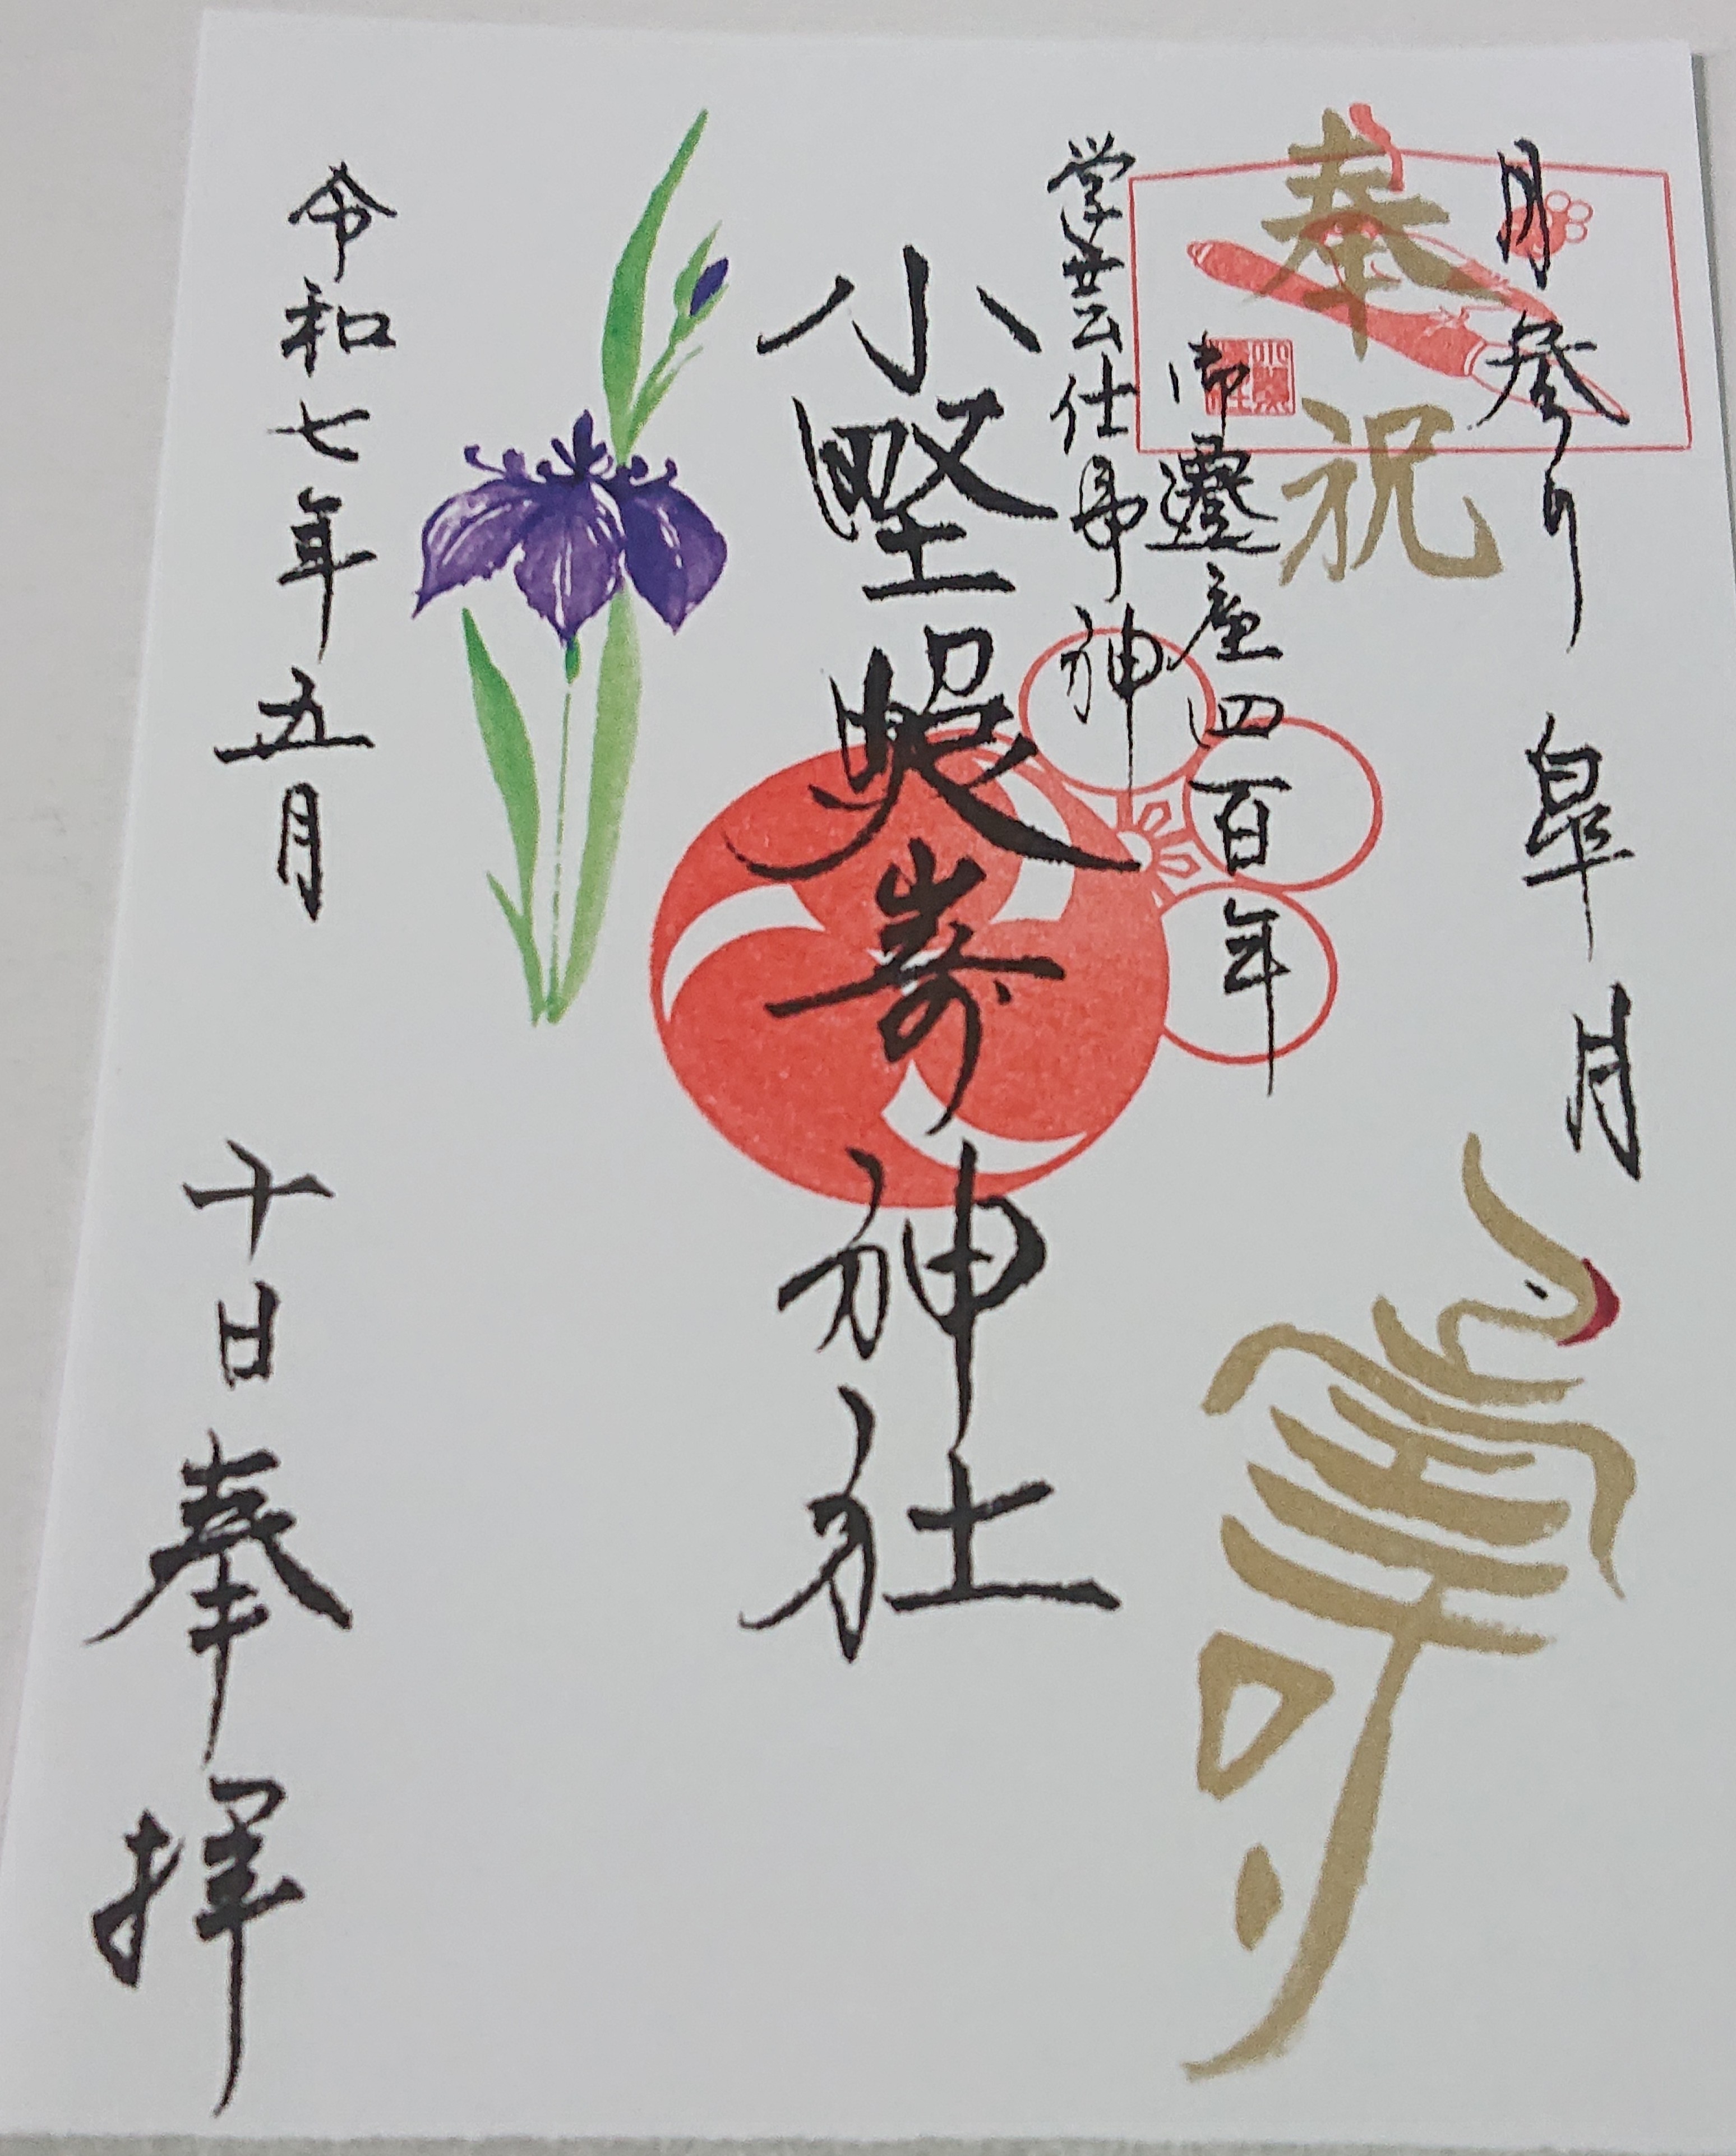 月参り 皐月
奉祝
壽
御遷座四百年
学芸仕事神
小野照崎神社
令和七年五月 十日 奉拝